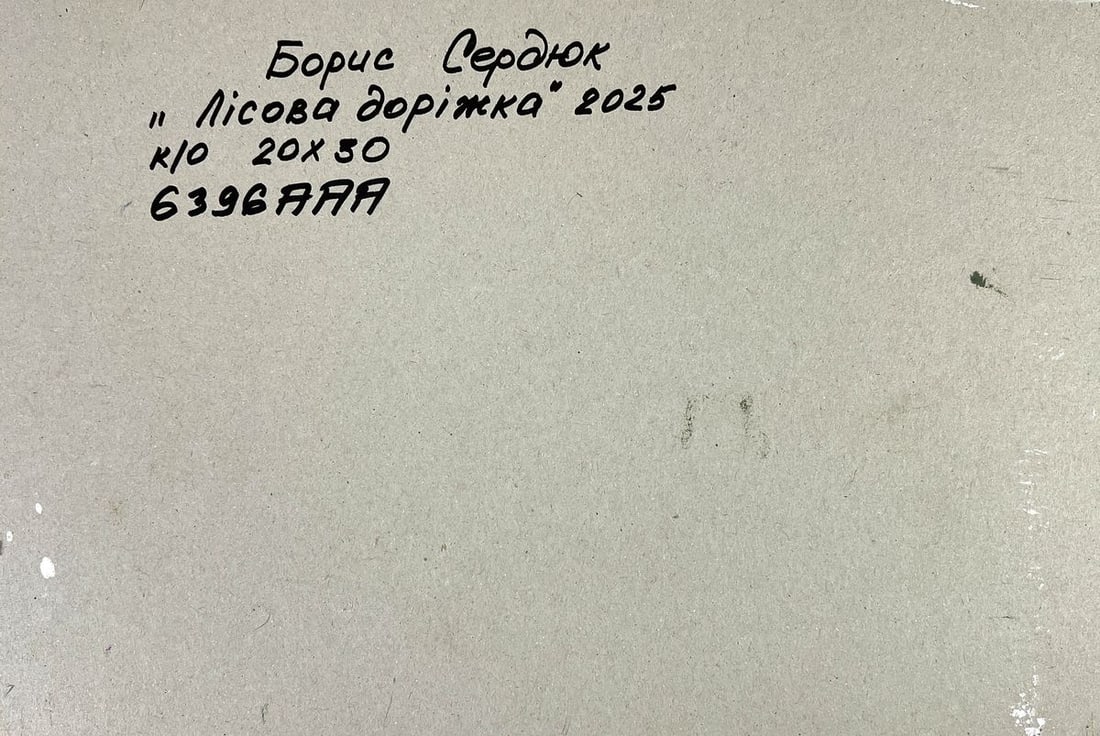 Борис Сердюк
„ Лісова доріжка" 2025
к/о 20х30
6396ААА